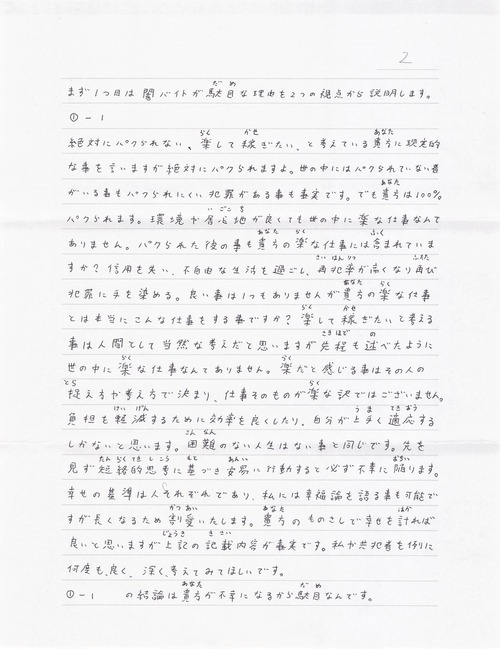 2
まず1つ目は闇バイトが駄目な理由を2つの視点から説明します。
①-1
絶対にパクられない、楽して稼ぎたい、と考えている貴方に現実的
な事を言いますが絶対にパクられますよ。世の中にはパクられていない者
がいる事もパクられにくい犯罪がある事も事実です。でも貴方は100%
パクられます。環境や居心地が良くても世の中に楽な仕事なんて
ありません。パクられた後の事も貴方の楽な仕事には含まれていま
すか?信用を失い、不自由な生活を過ごし、再犯率が高くなり再び
犯罪に手を染める。良い事は1つもありませんが貴方の楽な仕事
とは本当にこんな仕事をする事ですか?楽して稼ぎたいと考える
事は人間として当然な考えだと思いますが先程も述べたように
世の中に楽な仕事なんてありません。楽だと感じる事はその人の
捉え方や考え方で決まり、仕事そのものが楽な訳ではございません。
負担を軽減するために効率を良くしたり、自分が上手く適応する
しかないと思います。困難のない人生はない事と同じです。先を
見ず短絡的思考に基づき安易に行動すると必ず不幸に陥ります。
幸せの基準は人それぞれであり、私には幸福論を語る事も可能で
すが長くなるため割愛いたします。貴方のものさしで幸せを計れば
良いと思いますが上記の記載内容が事実です。私や共犯者を例りに
何度も、良く、深く、考えてみてほしいです。
①-1 の結論は貴方が不幸になるから駄目なんです。